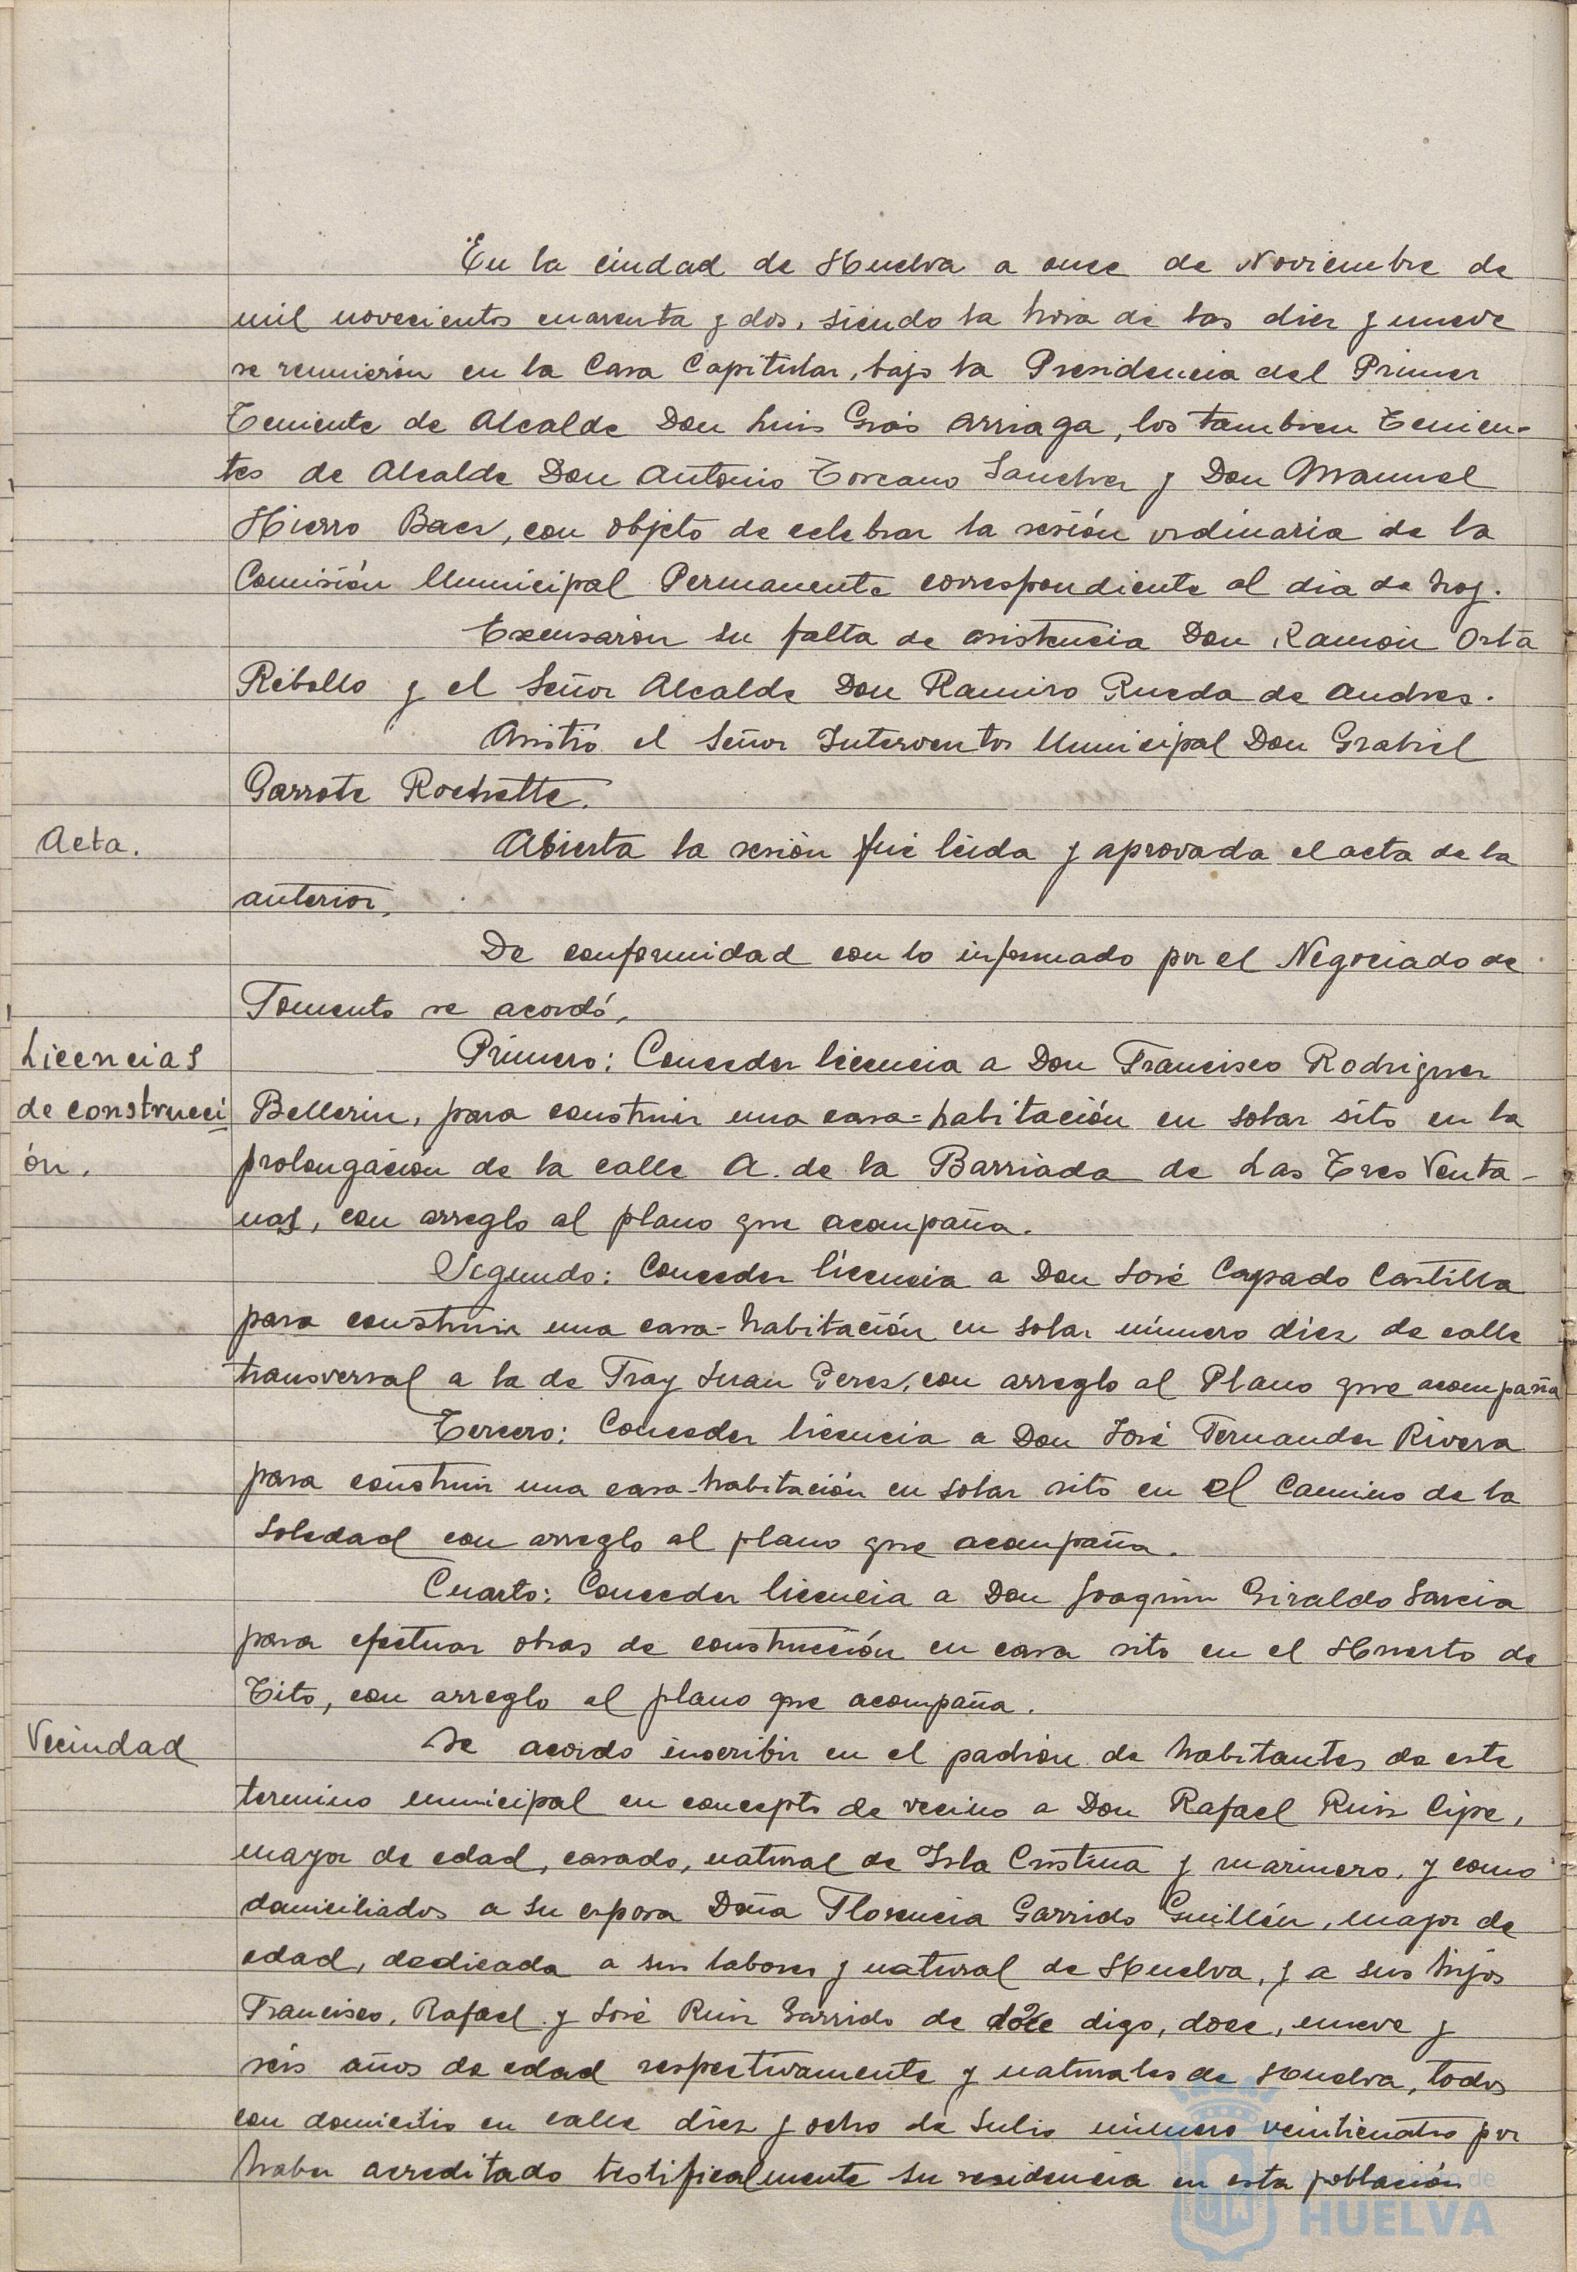 En la ciudad de Huelva a once de Noviembre de
mil novecientos cuarenta y dos, siendo la hora de las diez y nueve
se reunierón en la Casa Capitular, bajo la Presidencia del Primer
Teniente de Alcalde Don Luis Grás Arriaga, los tambien Tenien-
tes de Alcalde Don Antonio Toscano Sanchez y Don Manuel
Hierro Baez, con objeto de celebrar la sesión ordinaria de la
Comisión Municipal Permanente correspondiente al dia de hoy.
Excusarón su falta de asistencia Don Ramón Orta
Rebollo y el Señor Alcalde Don Ramiro Rueda de Andres.
Asistió el Señor Interventor Municipal Don Grabiel
Garrote Rochette.
Acta.
Abierta la sesión fué leida y aprovada el acta de la
anterior.
De conformidad con lo informado por el Negociado de
Fomento se acordó,
Licencias
de construcci
ón.
Primero: Conceder licencia a Don Francisco Rodriguez
Bellerin, para construir una casa=habitación en solar sito en la
prolongación de la calle A. de la Barriada de Las Tres Venta-
nas, con arreglo al plano que acompaña.
Segundo: Conceder licencia a Don José Capado Castilla
para construir una casa-habitación en solar número diez de calle
transversal a la de Fray Juan Perez, con arreglo al Plano que acompaña
Tercero: Conceder licencia a Don José Fernandez Rivera
para construir una casa-habitación en solar sito en el Camino de la
Soledad con arreglo al plano que acompaña.
Cuarto: Conceder licencia a Don Joaquin Giraldo Garcia
para efectuar obras de construcción en casa sito en el Huerto de
Tito, con arreglo al plano que acompaña.
Vecindad
Se acordo inscribir en el padrón de habitantes de este
termino municipal en concepto de vecino a Don Rafael Ruiz Cipe,
mayor de edad, casado, natural de Isla Cristina y marinero, y como
domiciliados a su esposa Doña Florencia Garrido Guillén, mayor de
edad, dedicada a sus labores y natural de Huelva, y a sus hijos
Francisco, Rafael y José Ruiz Garrido de doce digo, doce, nueve y
seis años de edad respectivamente y naturales de Huelva, todos
con domicilio en calle diez y ocho de Julio número veinticuatro por
haber acreditado testificalmente su residencia en esta población
Ayuntamiento de
HUELVA